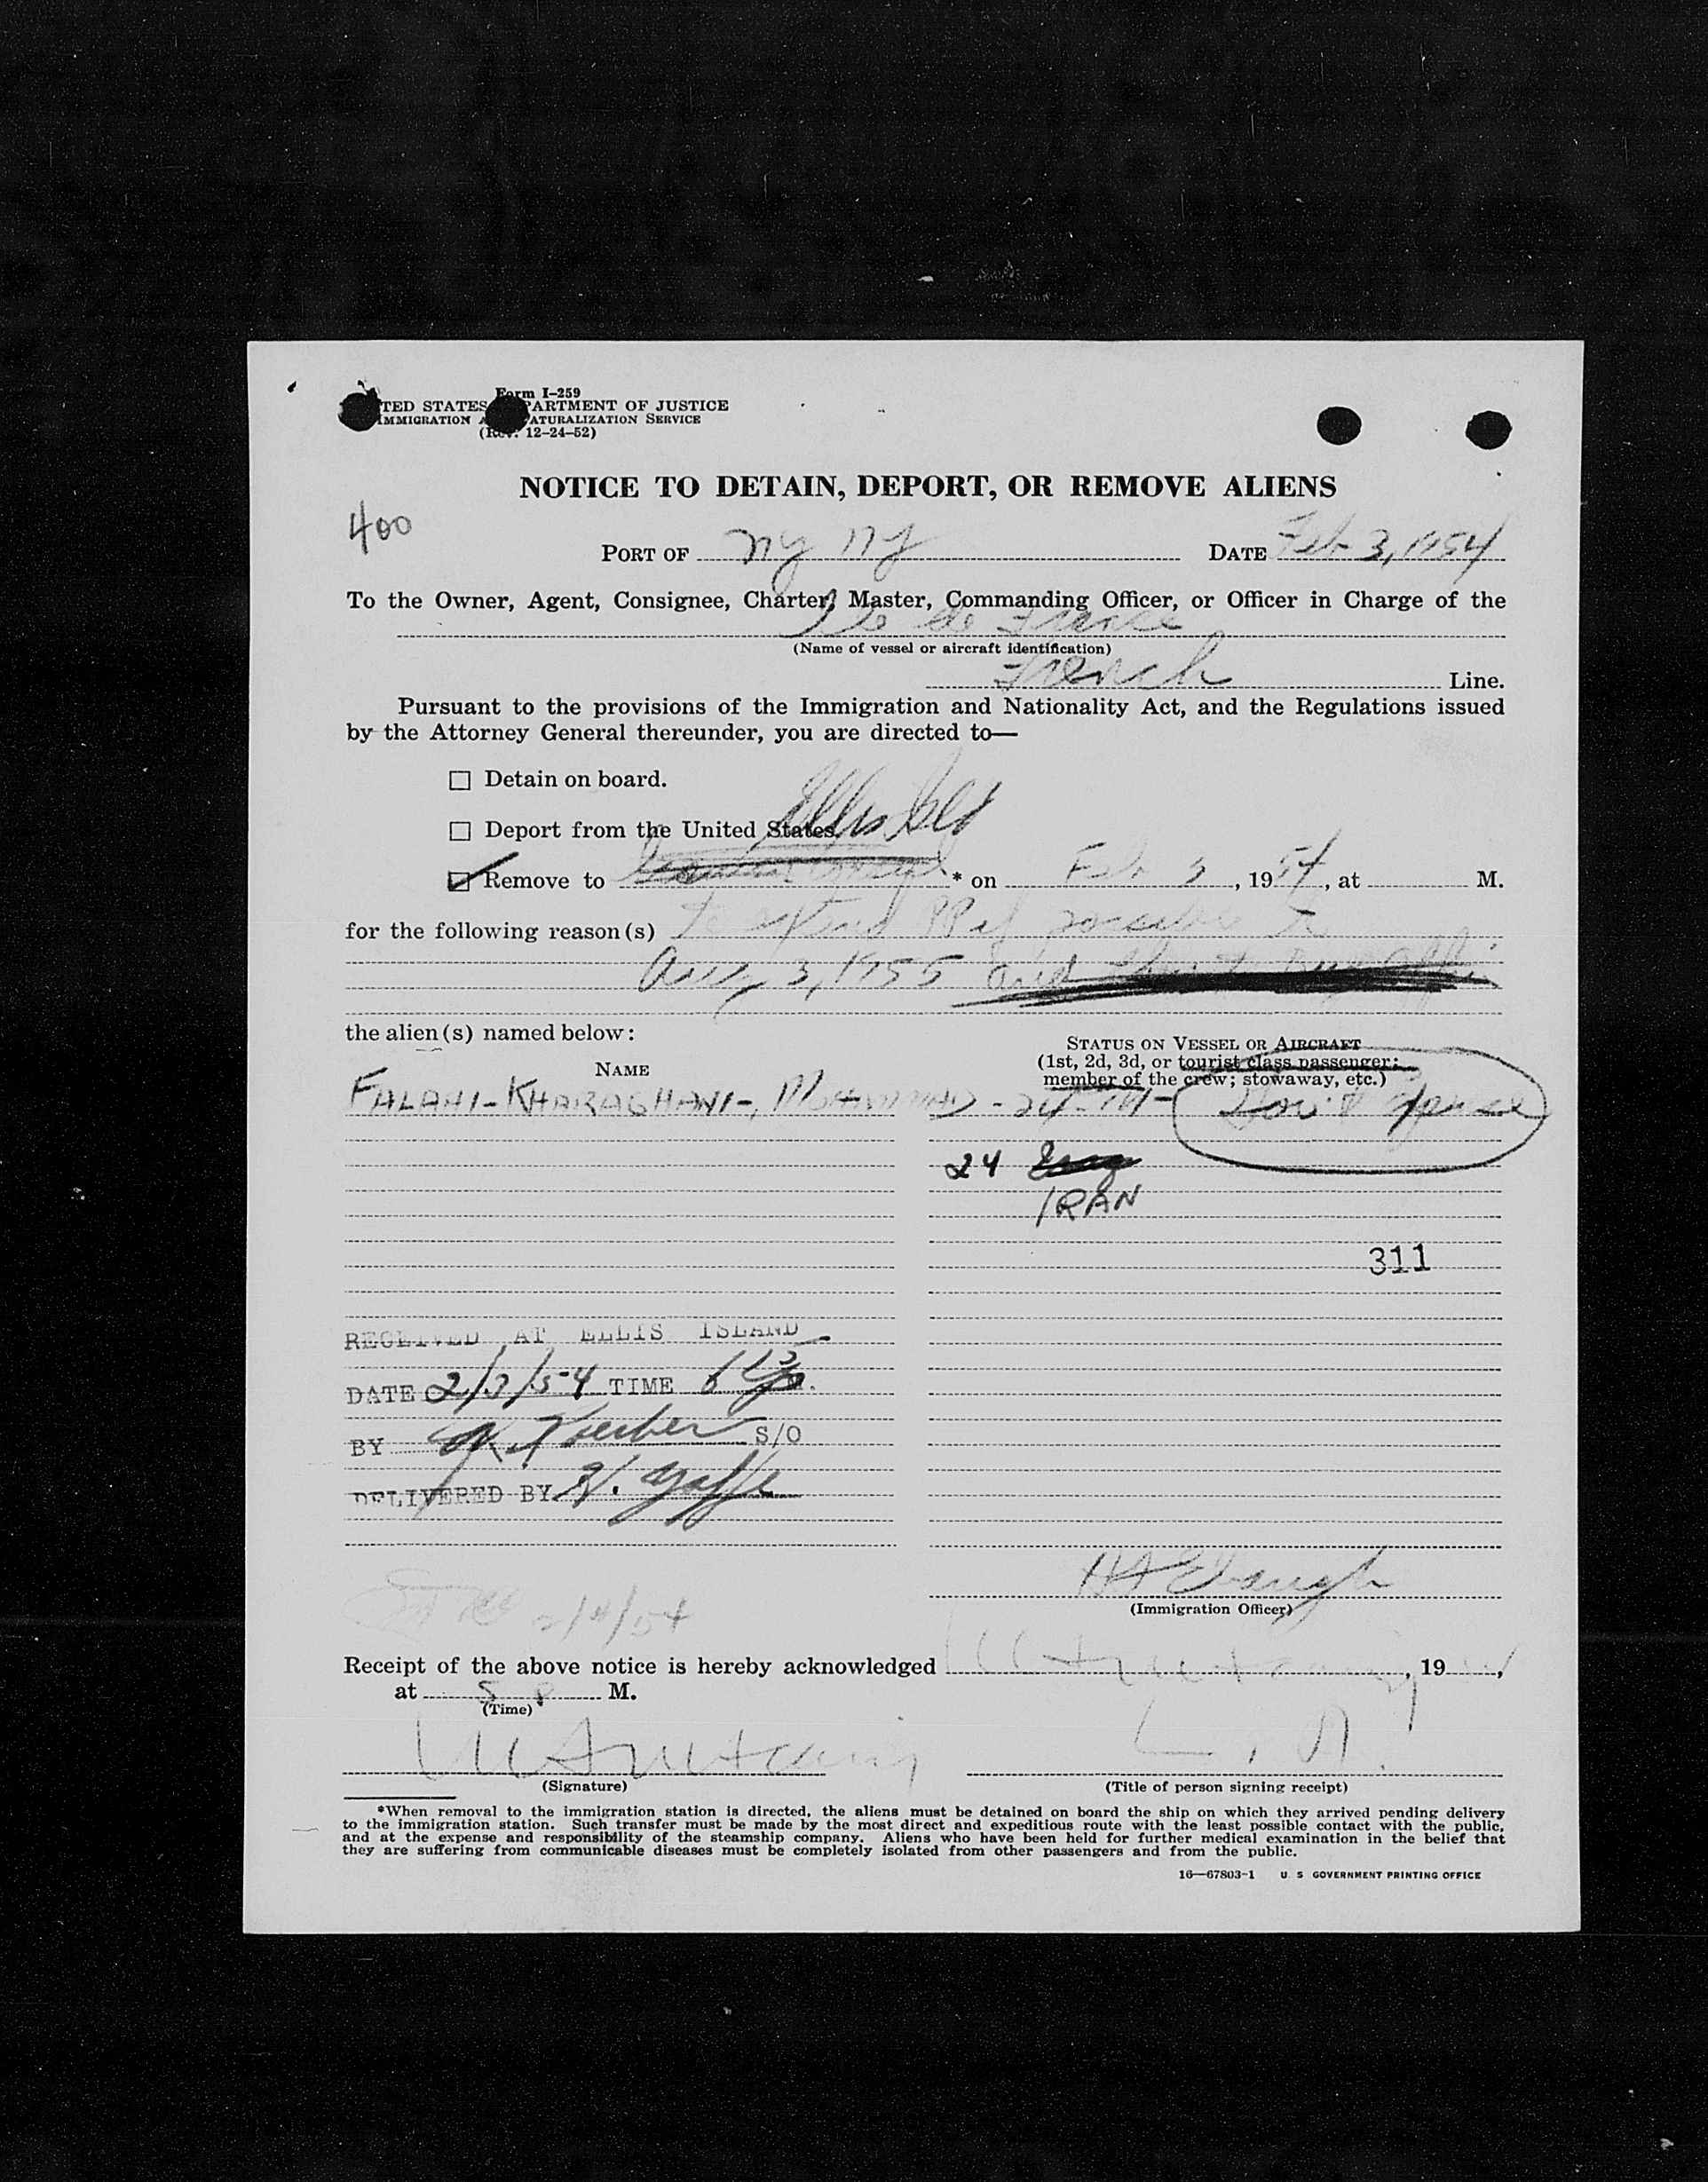 Form I-259
TED STATES PARTMENT OF JUSTICE
IMMIGRATION NATURALIZATION SERVICE
(Rev. 12-24-52)
NOTICE TO DETAIN, DEPORT, OR REMOVE ALIENS
400
PORT OF NY NY DATE Feb 3, 1954
To the Owner, Agent, Consignee, Charter, Master, Commanding Officer, or Officer in Charge of the
Ile de France
(Name of vessel or aircraft identification)
French Line.
Pursuant to the provisions of the Immigration and Nationality Act, and the Regulations issued
by the Attorney General thereunder, you are directed to—
☐ Detain on board.
☐ Deport from the United States.
Ellis Isld
☑ Remove to * on Feb 3, 1954, at M.
for the following reason(s) to extend PP if possible to
Aug 3, 1955 and
the alien(s) named below:
STATUS ON VESSEL OR AIRCRAFT
(1st, 2d, 3d, or tourist class passenger;
member of the crew; stowaway, etc.)
NAME
FALAHI-KHARAGHANI-, MOHAMMAD - 24
24
IRAN
311
RECEIVED AT ELLIS ISLAND
DATE 2/3/54 TIME 6 M.
BY S/O
DELIVERED BY H. Yaffe
2/4/54
H A Ebaugh
(Immigration Officer)
Receipt of the above notice is hereby acknowledged , 19 ,
at 5 P M.
(Time)
(Signature)
(Title of person signing receipt)
*When removal to the immigration station is directed, the aliens must be detained on board the ship on which they arrived pending delivery
to the immigration station. Such transfer must be made by the most direct and expeditious route with the least possible contact with the public,
and at the expense and responsibility of the steamship company. Aliens who have been held for further medical examination in the belief that
they are suffering from communicable diseases must be completely isolated from other passengers and from the public.
16—67803-1 U S GOVERNMENT PRINTING OFFICE